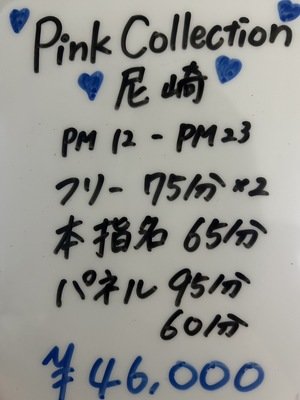 Pink Collection
尼崎
PM 12 - PM 23
フリー 75分×2
本指名 65分
パネル 95分
60分
¥46,000